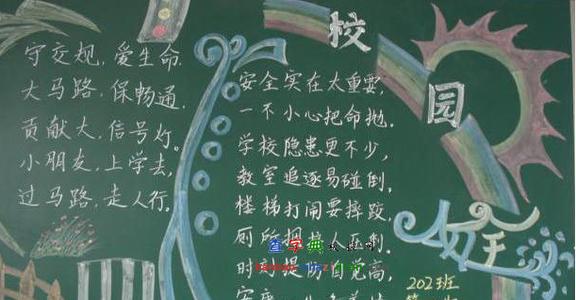 守交规，爱生命.
大马路，保畅通，
贡献大，信号灯。
小朋友，上学去，
过马路，走人行。
校园
安全
安全实在太重要，
一不小心把命抛，
学校隐患更不少，
教室追逐易碰倒，
楼梯打闹要摔跤，
厕所拥挤人
时刻提 自觉高，
查字典
202班